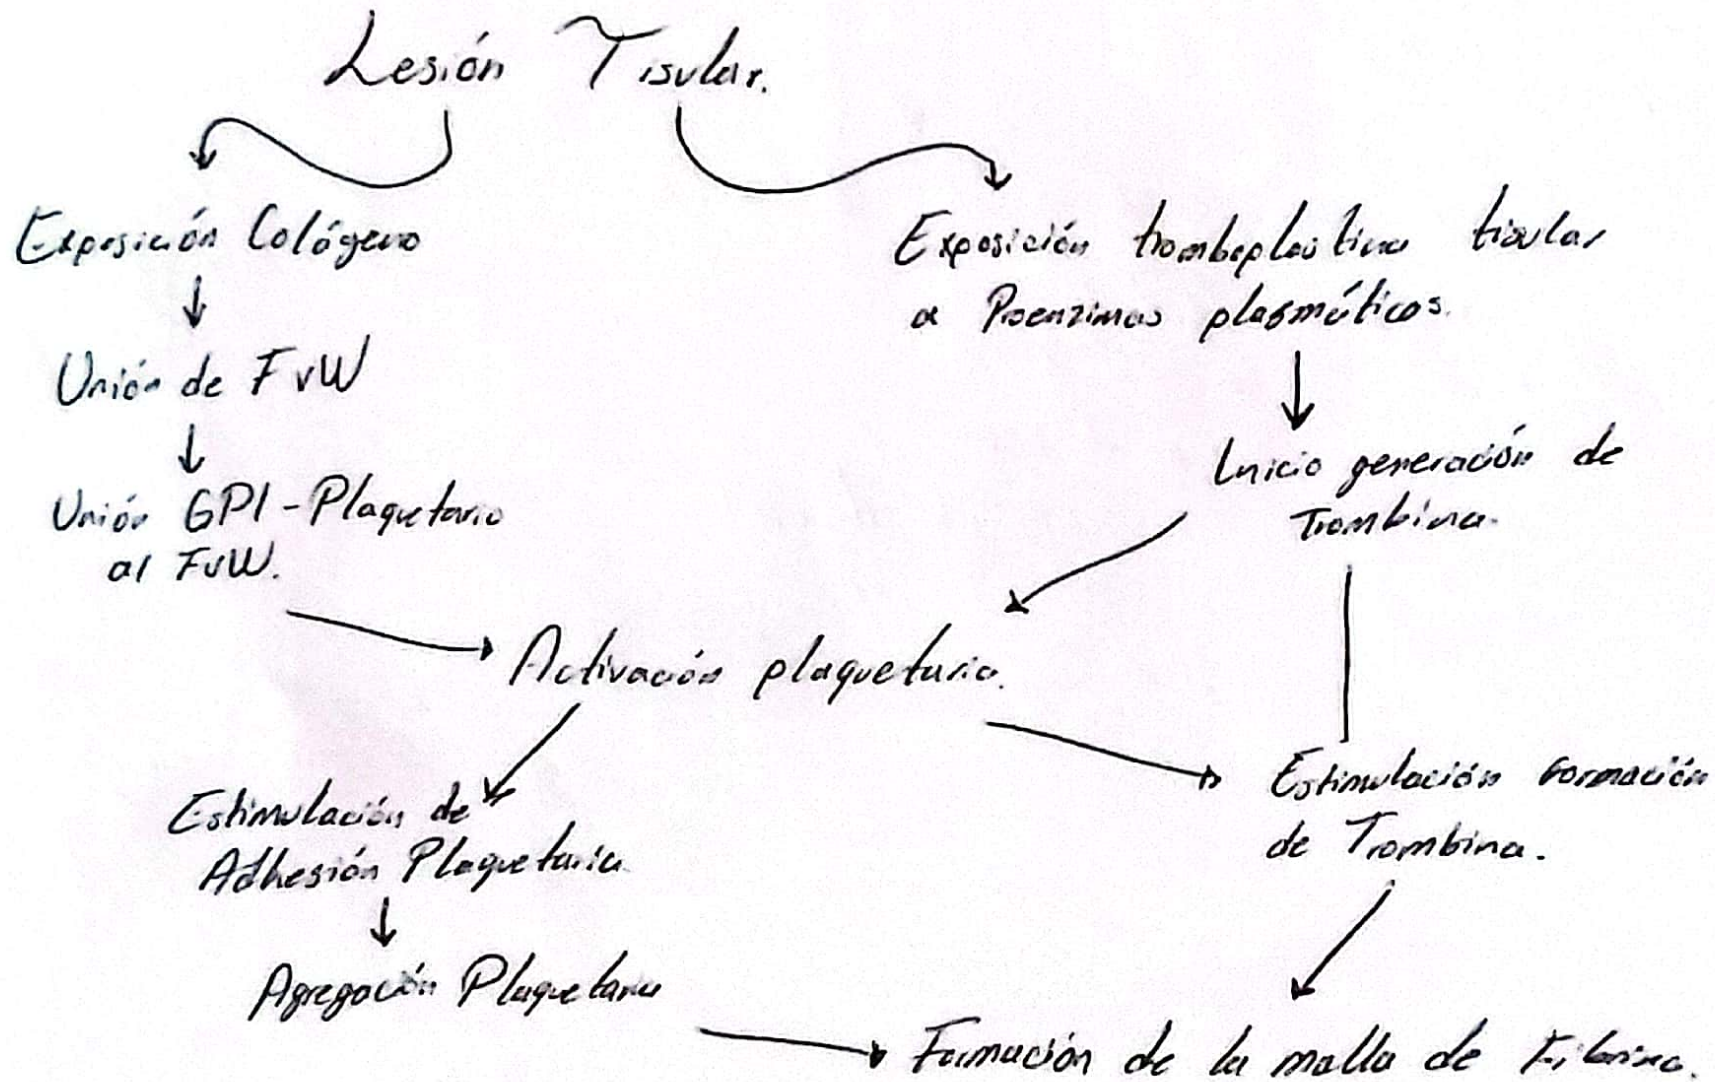 Lesión Tisular.
Exposición Colágeno
Unión de FvW
Unión GPI-Plaquetario
al FvW.
Exposición tromboplastina tisular
a Proenzimas plasmáticos.
Inicio generación de
Trombina.
Activación plaquetaria.
Estimulación de
Adhesión Plaquetaria
Agregación Plaquetaria
Estimulación formación
de Trombina.
Formación de la malla de Fibrina.